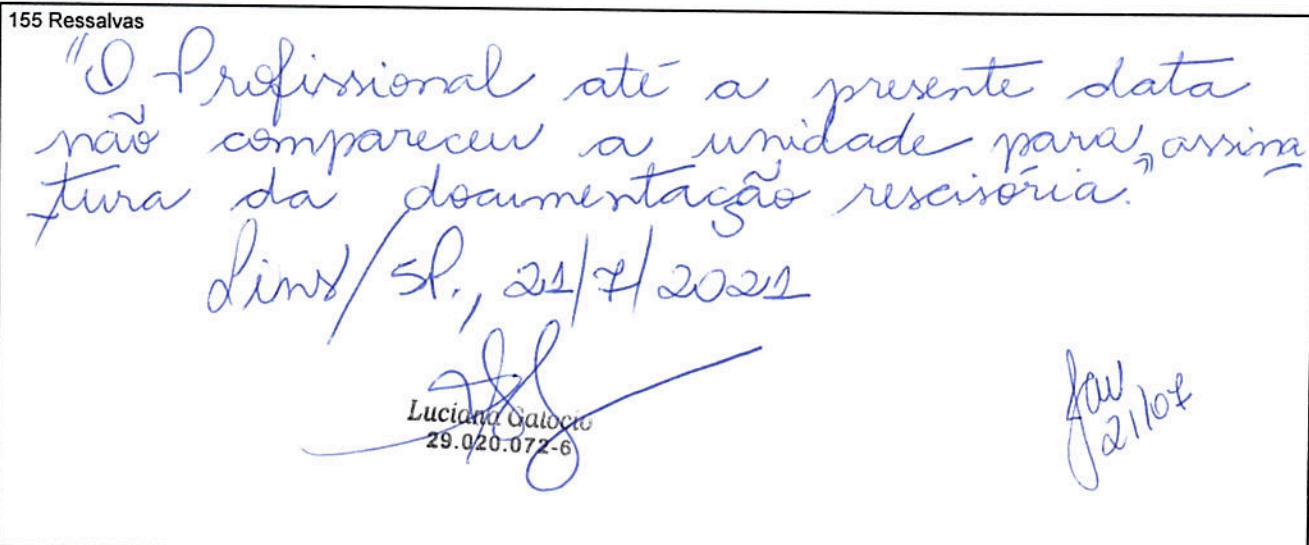 155 Ressalvas
"O Profissional até a presente data
não compareceu a unidade para assina
tura da documentação rescisória."
Lins/SP., 21/7/2021
Luciana Galocio
29.020.072-6
21/07